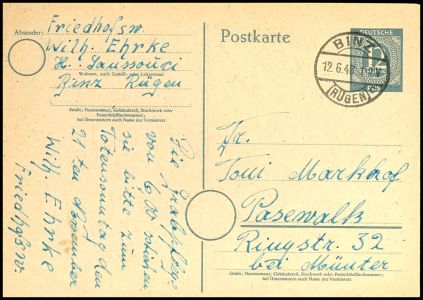 Absender:
Friedhofsw.
Wilh. Ehrke
H. Sanssouci
Wohnort, auch Zustell- oder Leitpostamt
Binz Rügen
Straße, Hausnummer, Gebäudeteil, Stockwerk oder
Postschließfachnummer;
bei Untermietern auch Name des Vermieters
Postkarte
DEUTSCHE
12
BINZ
12.6.46
(RÜGEN)
Fr.
Toni Markhof
Pasewalk
Ringstr. 32
bei Münter
Straße, Hausnummer, Gebäudeteil, Stockwerk oder Postschließfachnummer;
bei Untermietern auch Name des Vermieters
Die Grabpflege
von 60 M schicken
sie bitte zum
Totensonntag den
21ten November
Wilh. Ehrke
Friedhofsw.